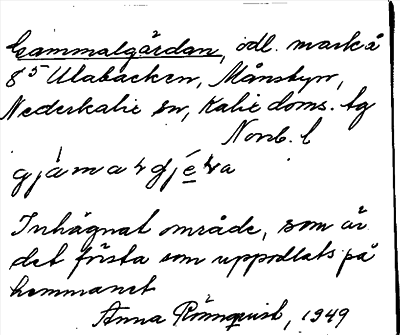 Gammalgärdan, odl. mark å
8⁵ Ulabacken, Månsbyn,
Nederkalix sn, Kalix doms. tg
Norrb. l
Inhägnat område, som är
det första som uppodlats på
hemmanet
Anna Rönnquist, 1949